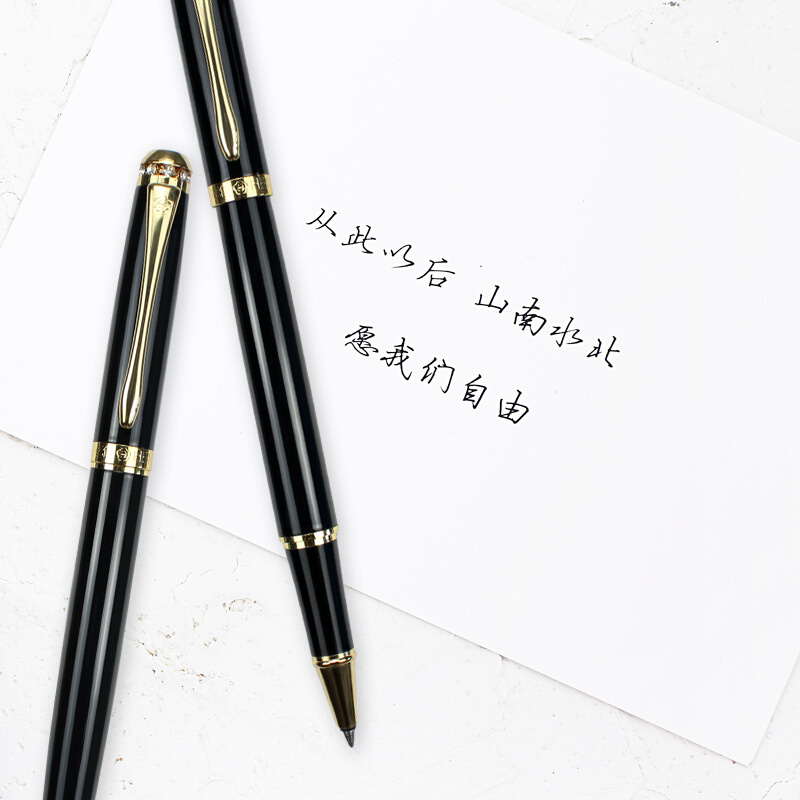 从此以后 山南水北
愿我们自由